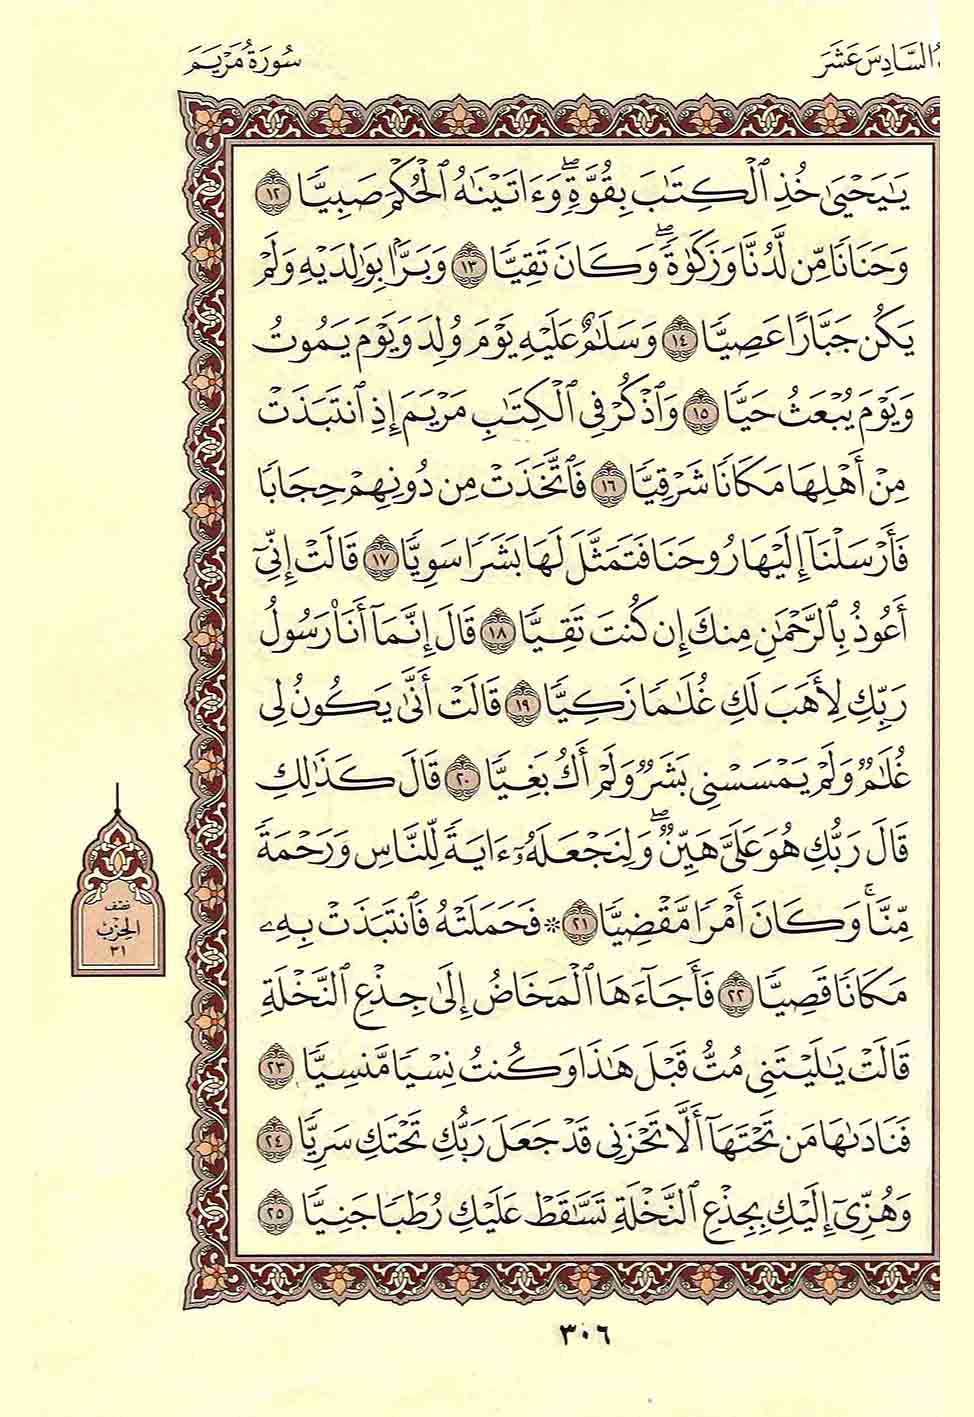 السَّادِسَ عَشَرَ
سُورَةُ مَرْيَمَ
يَٰيَحْيَىٰ خُذِ ٱلْكِتَٰبَ بِقُوَّةٖۖ وَءَاتَيْنَٰهُ ٱلْحُكْمَ صَبِيّٗا ١٢
وَحَنَانٗا مِّن لَّدُنَّا وَزَكَوٰةٗۖ وَكَانَ تَقِيّٗا ١٣ وَبَرَّۢا بِوَٰلِدَيْهِ وَلَمْ
يَكُن جَبَّارًا عَصِيّٗا ١٤ وَسَلَٰمٌ عَلَيْهِ يَوْمَ وُلِدَ وَيَوْمَ يَمُوتُ
وَيَوْمَ يُبْعَثُ حَيّٗا ١٥ وَٱذْكُرْ فِي ٱلْكِتَٰبِ مَرْيَمَ إِذِ ٱنتَبَذَتْ
مِنْ أَهْلِهَا مَكَانٗا شَرْقِيّٗا ١٦ فَٱتَّخَذَتْ مِن دُونِهِمْ حِجَابٗا
فَأَرْسَلْنَآ إِلَيْهَا رُوحَنَا فَتَمَثَّلَ لَهَا بَشَرٗا سَوِيّٗا ١٧ قَالَتْ إِنِّيٓ
أَعُوذُ بِٱلرَّحْمَٰنِ مِنكَ إِن كُنتَ تَقِيّٗا ١٨ قَالَ إِنَّمَآ أَنَا۠ رَسُولُ
رَبِّكِ لِأَهَبَ لَكِ غُلَٰمٗا زَكِيّٗا ١٩ قَالَتْ أَنَّىٰ يَكُونُ لِي
غُلَٰمٞ وَلَمْ يَمْسَسْنِي بَشَرٞ وَلَمْ أَكُ بَغِيّٗا ٢٠ قَالَ كَذَٰلِكِ
قَالَ رَبُّكِ هُوَ عَلَيَّ هَيِّنٞۖ وَلِنَجْعَلَهُۥٓ ءَايَةٗ لِّلنَّاسِ وَرَحْمَةٗ
مِّنَّاۚ وَكَانَ أَمْرٗا مَّقْضِيّٗا ٢١ ۞فَحَمَلَتْهُ فَٱنتَبَذَتْ بِهِۦ
مَكَانٗا قَصِيّٗا ٢٢ فَأَجَآءَهَا ٱلْمَخَاضُ إِلَىٰ جِذْعِ ٱلنَّخْلَةِ
قَالَتْ يَٰلَيْتَنِي مُتُّ قَبْلَ هَٰذَا وَكُنتُ نِسْيٗا مَّنسِيّٗا ٢٣
فَنَادَىٰهَا مَن تَحْتَهَآ أَلَّا تَحْزَنِي قَدْ جَعَلَ رَبُّكِ تَحْتَكِ سَرِيّٗا ٢٤
وَهُزِّيٓ إِلَيْكِ بِجِذْعِ ٱلنَّخْلَةِ تَسَّٰقَطْ عَلَيْكِ رُطَبٗا جَنِيّٗا ٢٥
نصف
الحزب
٣١
٣٠٦